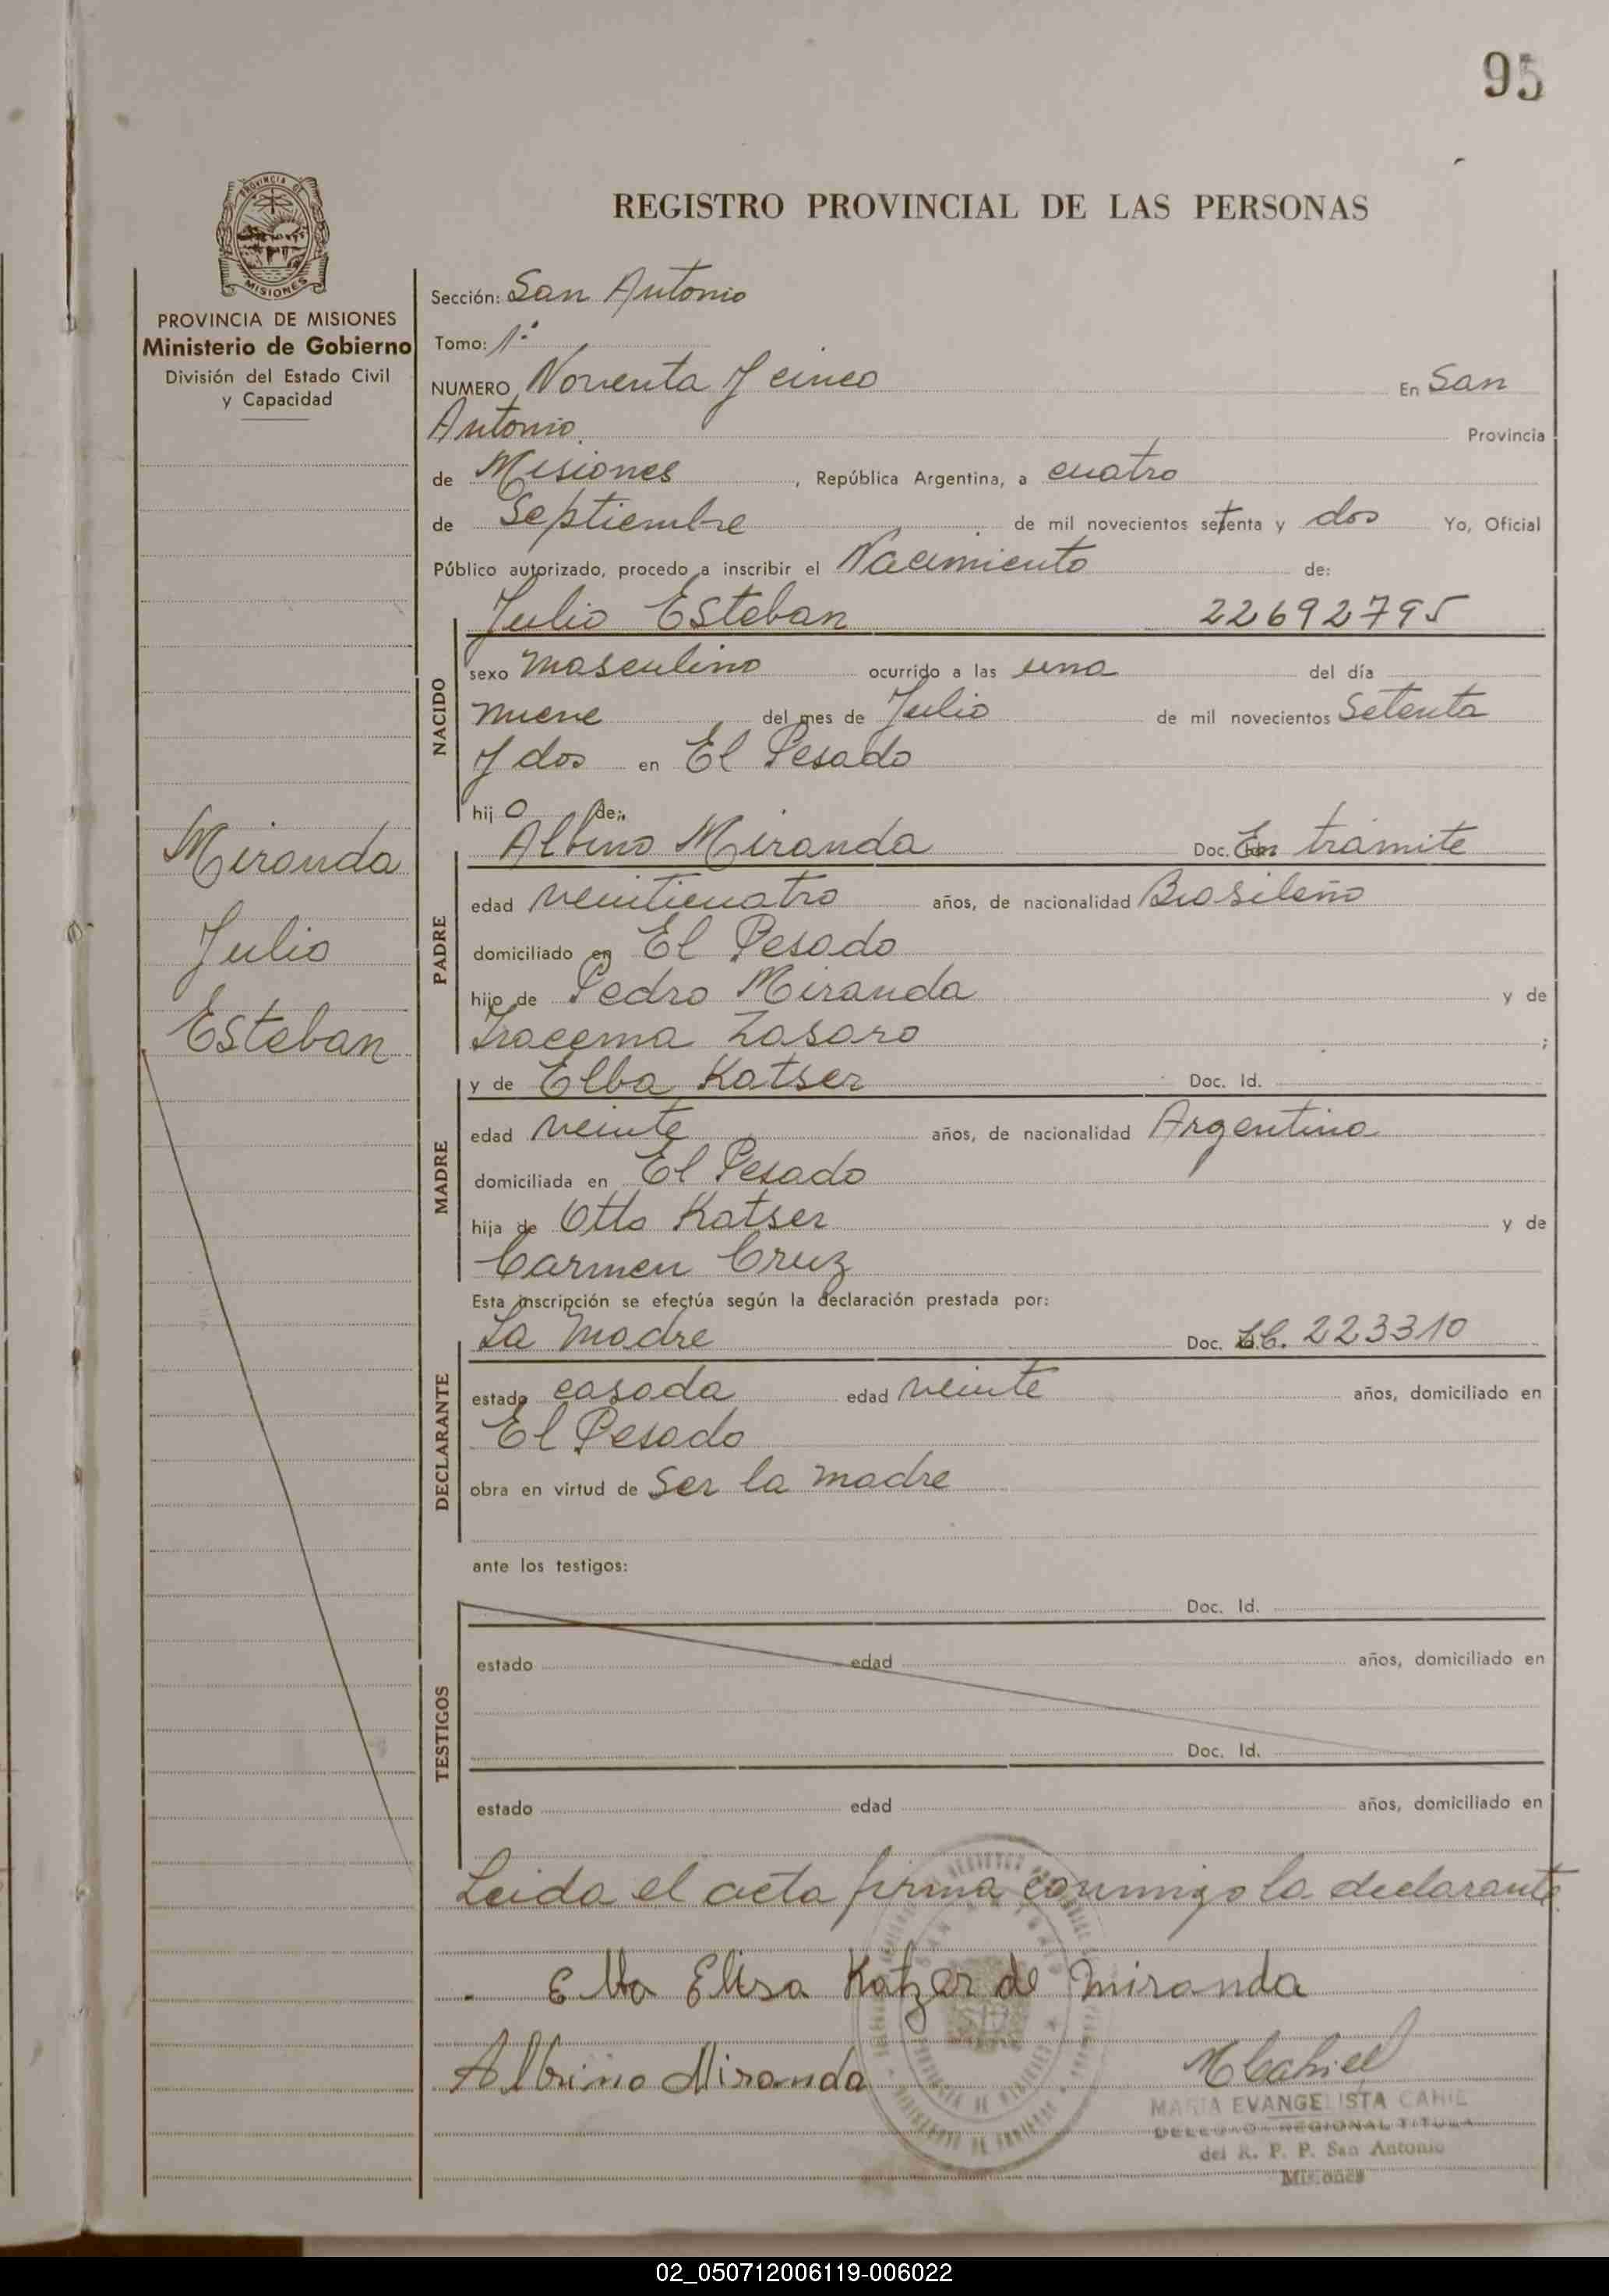 95
REGISTRO PROVINCIAL DE LAS PERSONAS
PROVINCIA DE MISIONES
PROVINCIA DE MISIONES
Ministerio de Gobierno
División del Estado Civil
y Capacidad
Miranda
Julio
Esteban
Sección: San Antonio
Tomo: 1º
NUMERO Noventa y cinco En San
Antonio Provincia
de Misiones, República Argentina, a cuatro
de Septiembre de mil novecientos setenta y dos Yo, Oficial
Público autorizado, procedo a inscribir el Nacimiento de:
Julio Esteban 22692795
NACIDO
sexo masculino ocurrido a las una del día
nueve del mes de Julio de mil novecientos Setenta
y dos en El Pesado
hijo de:
PADRE
Albino Miranda Doc. En trámite
edad veinticuatro años, de nacionalidad Brasileño
domiciliado en El Pesado
hijo de Pedro Miranda y de
Iracema Lasaro ;
MADRE
y de Elba Katser Doc. Id.
edad veinte años, de nacionalidad Argentina
domiciliada en El Pesado
hija de Otto Katser y de
Carmen Cruz
Esta inscripción se efectúa según la declaración prestada por:
DECLARANTE
La Madre Doc. L.C. 223310
estado casada edad veinte años, domiciliado en
El Pesado
obra en virtud de Ser la madre
ante los testigos:
TESTIGOS
Doc. Id.
estado edad años, domiciliado en
Doc. Id.
estado edad años, domiciliado en
Leida el acta firma conmigo la declarante
Elba Elisa Katzer de Miranda
Albino Miranda MCahiel
MARIA EVANGELISTA CAHIE
DELEGADO REGIONAL TITULA
del R. P. P. San Antonio
Misiones
02_050712006119-006022